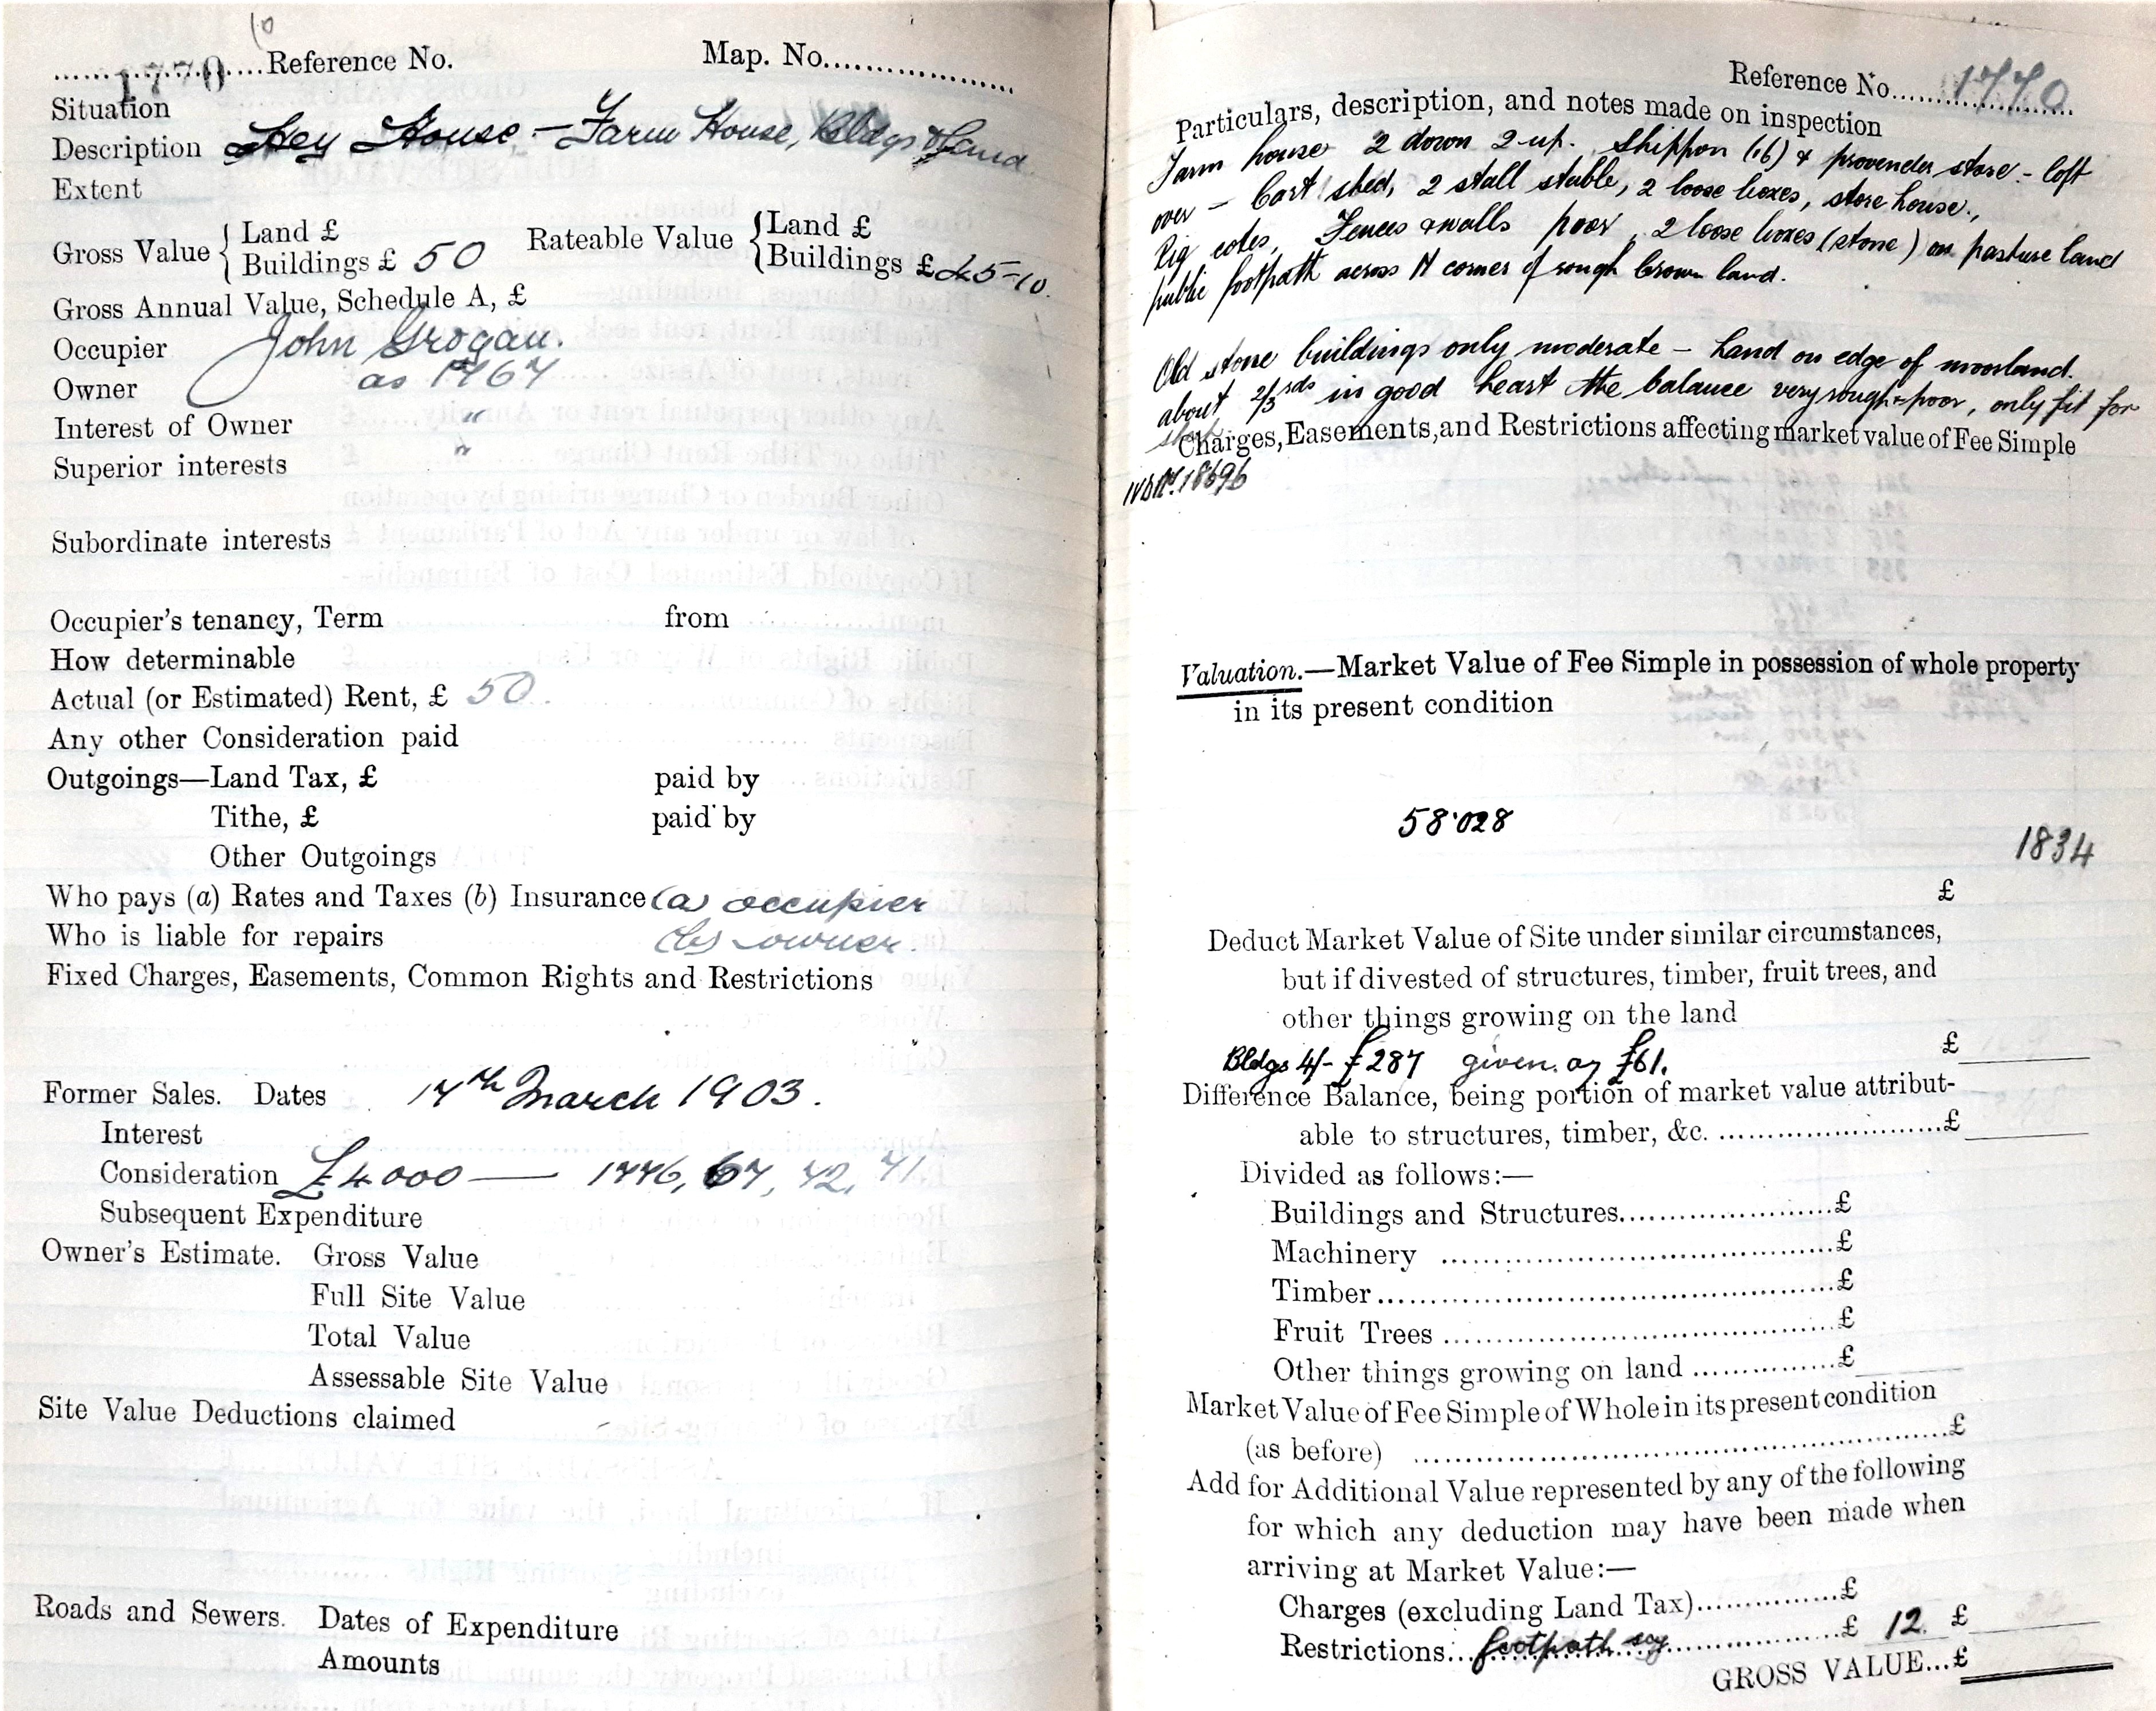 10
1770 Reference No. Map. No.
Situation
Description Hey House - Farm House, Bldgs & Land
Extent
Gross Value { Land £ Rateable Value { Land £
Buildings £ 50 Buildings £ 45-10.
Gross Annual Value, Schedule A, £
Occupier John Grogan.
Owner as 1767
Interest of Owner "
Superior interests "
Subordinate interests
Occupier's tenancy, Term from
How determinable
Actual (or Estimated) Rent, £ 50.
Any other Consideration paid
Outgoings—Land Tax, £ paid by
Tithe, £ paid by
Other Outgoings
Who pays (a) Rates and Taxes (b) Insurance (a) occupier
Who is liable for repairs (b) owner.
Fixed Charges, Easements, Common Rights and Restrictions
Former Sales. Dates 17th March 1903.
Interest
Consideration £4000 — 1776, 67, 72, 71.
Subsequent Expenditure
Owner's Estimate. Gross Value
Full Site Value
Total Value
Assessable Site Value
Site Value Deductions claimed
Roads and Sewers. Dates of Expenditure
Amounts
Reference No. 1770
Particulars, description, and notes made on inspection
Farm house 2 down 2 up. Shippon (16) & provender store - loft
over - Cart shed, 2 stall stable, 2 loose boxes, store house.,
Pig cotes, Fences & walls poor, 2 loose boxes (stone) on pasture land
public footpath across N corner of rough brown land.
Old stone buildings only moderate - Land on edge of moorland.
about 2/3rds in good heart the balance very rough & poor, only fit for
Charges, Easements, and Restrictions affecting market value of Fee Simple
18696
Valuation.—Market Value of Fee Simple in possession of whole property
in its present condition
58·028
1834
£
Deduct Market Value of Site under similar circumstances,
but if divested of structures, timber, fruit trees, and
other things growing on the land
Bldgs 4/- £287 given. ag £61. £
Difference Balance, being portion of market value attribut-
able to structures, timber, &c. £
Divided as follows:—
Buildings and Structures £
Machinery £
Timber £
Fruit Trees £
Other things growing on land £
Market Value of Fee Simple of Whole in its present condition
(as before) £
Add for Additional Value represented by any of the following
for which any deduction may have been made when
arriving at Market Value:—
Charges (excluding Land Tax) £
Restrictions footpath say £ 12. £
GROSS VALUE...£